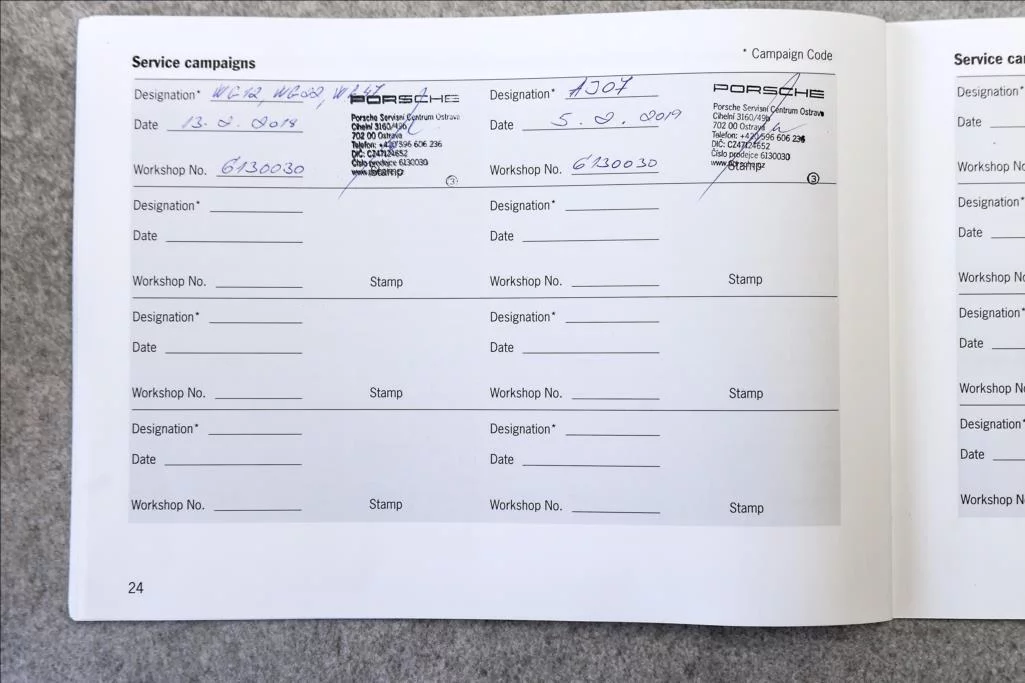 Service campaigns
* Campaign Code
Designation* WG12, WG22, WR47
Date 13. 2. 2018
Workshop No. 6130030
PORSCHE
Porsche Servisní Centrum Ostrava
Cihelní 3160/49b
702 00 Ostrava
Telefon: +420 596 606 236
DIČ: CZ47124652
Číslo prodejce 6130030
Stamp
3
Designation* AJ07
Date 5. 2. 2019
Workshop No. 6130030
PORSCHE
Porsche Servisní Centrum Ostrava
Cihelní 3160/49b
702 00 Ostrava
Telefon: +420 596 606 236
DIČ: CZ47124652
Číslo prodejce 6130030
Stamp
3
Designation*
Date
Workshop No. Stamp
Designation*
Date
Workshop No. Stamp
Designation*
Date
Workshop No. Stamp
Designation*
Date
Workshop No. Stamp
Designation*
Date
Workshop No. Stamp
Designation*
Date
Workshop No. Stamp
24
Service ca
Designation*
Date
Workshop No
Designation*
Date
Workshop No
Designation*
Date
Workshop No
Designation*
Date
Workshop N